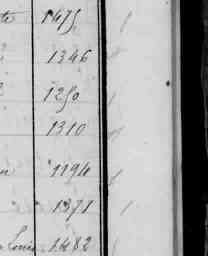 1475
1346
1250
1310
1194
1371
Louis 1482